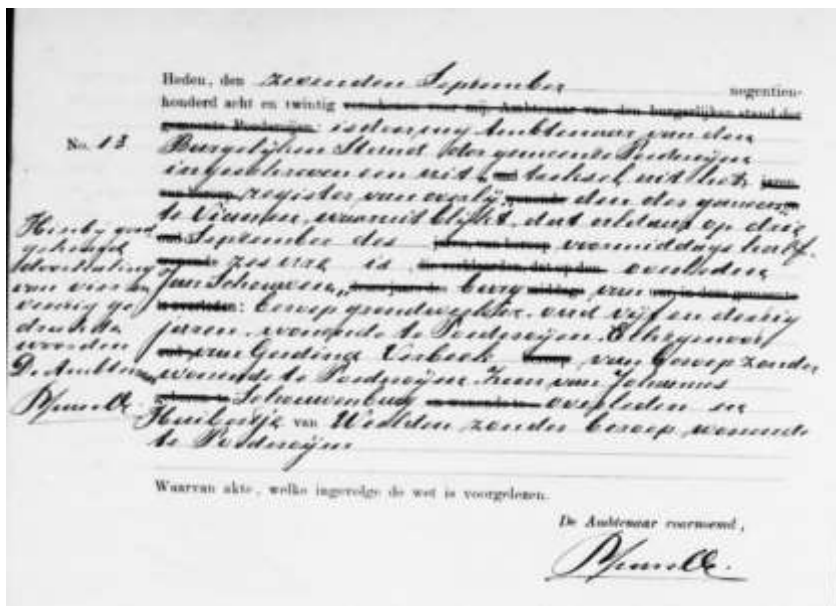 Heden, den zevenden September negentien-
honderd acht en twintig verscheen voor mij Ambtenaar van den burgerlijken stand der
gemeente Poederoijen: is door mij Ambtenaar van den
No. 13 Burgelijken Stand der gemeente Poederoijen
ingeschreven een uittreksel uit het
register van overlijden der gemeente
te Vianen, waaruit blijkt, dat aldaar op drie
September des voormiddags half
zes ure is overleden
Jan Schouwenburg van
beroep grondwerker oud vijf en dertig
jaren, wonende te Poederoijen. Echtgenoot
van Gerdina Verbeek van beroep zonder
wonende te Poederoijen. Zoon van Johannes
Schouwenburg overleden en
Huibertje van Weelden zonder beroep, wonende
te Poederoijen
Hierbij goed
gekeurd
doorhaling
van vier en
veertig ge
drukte
woorden
D. Ambtenaar
Waarvan akte, welke ingevolge de wet is voorgelezen.
De Ambtenaar voornoemd,